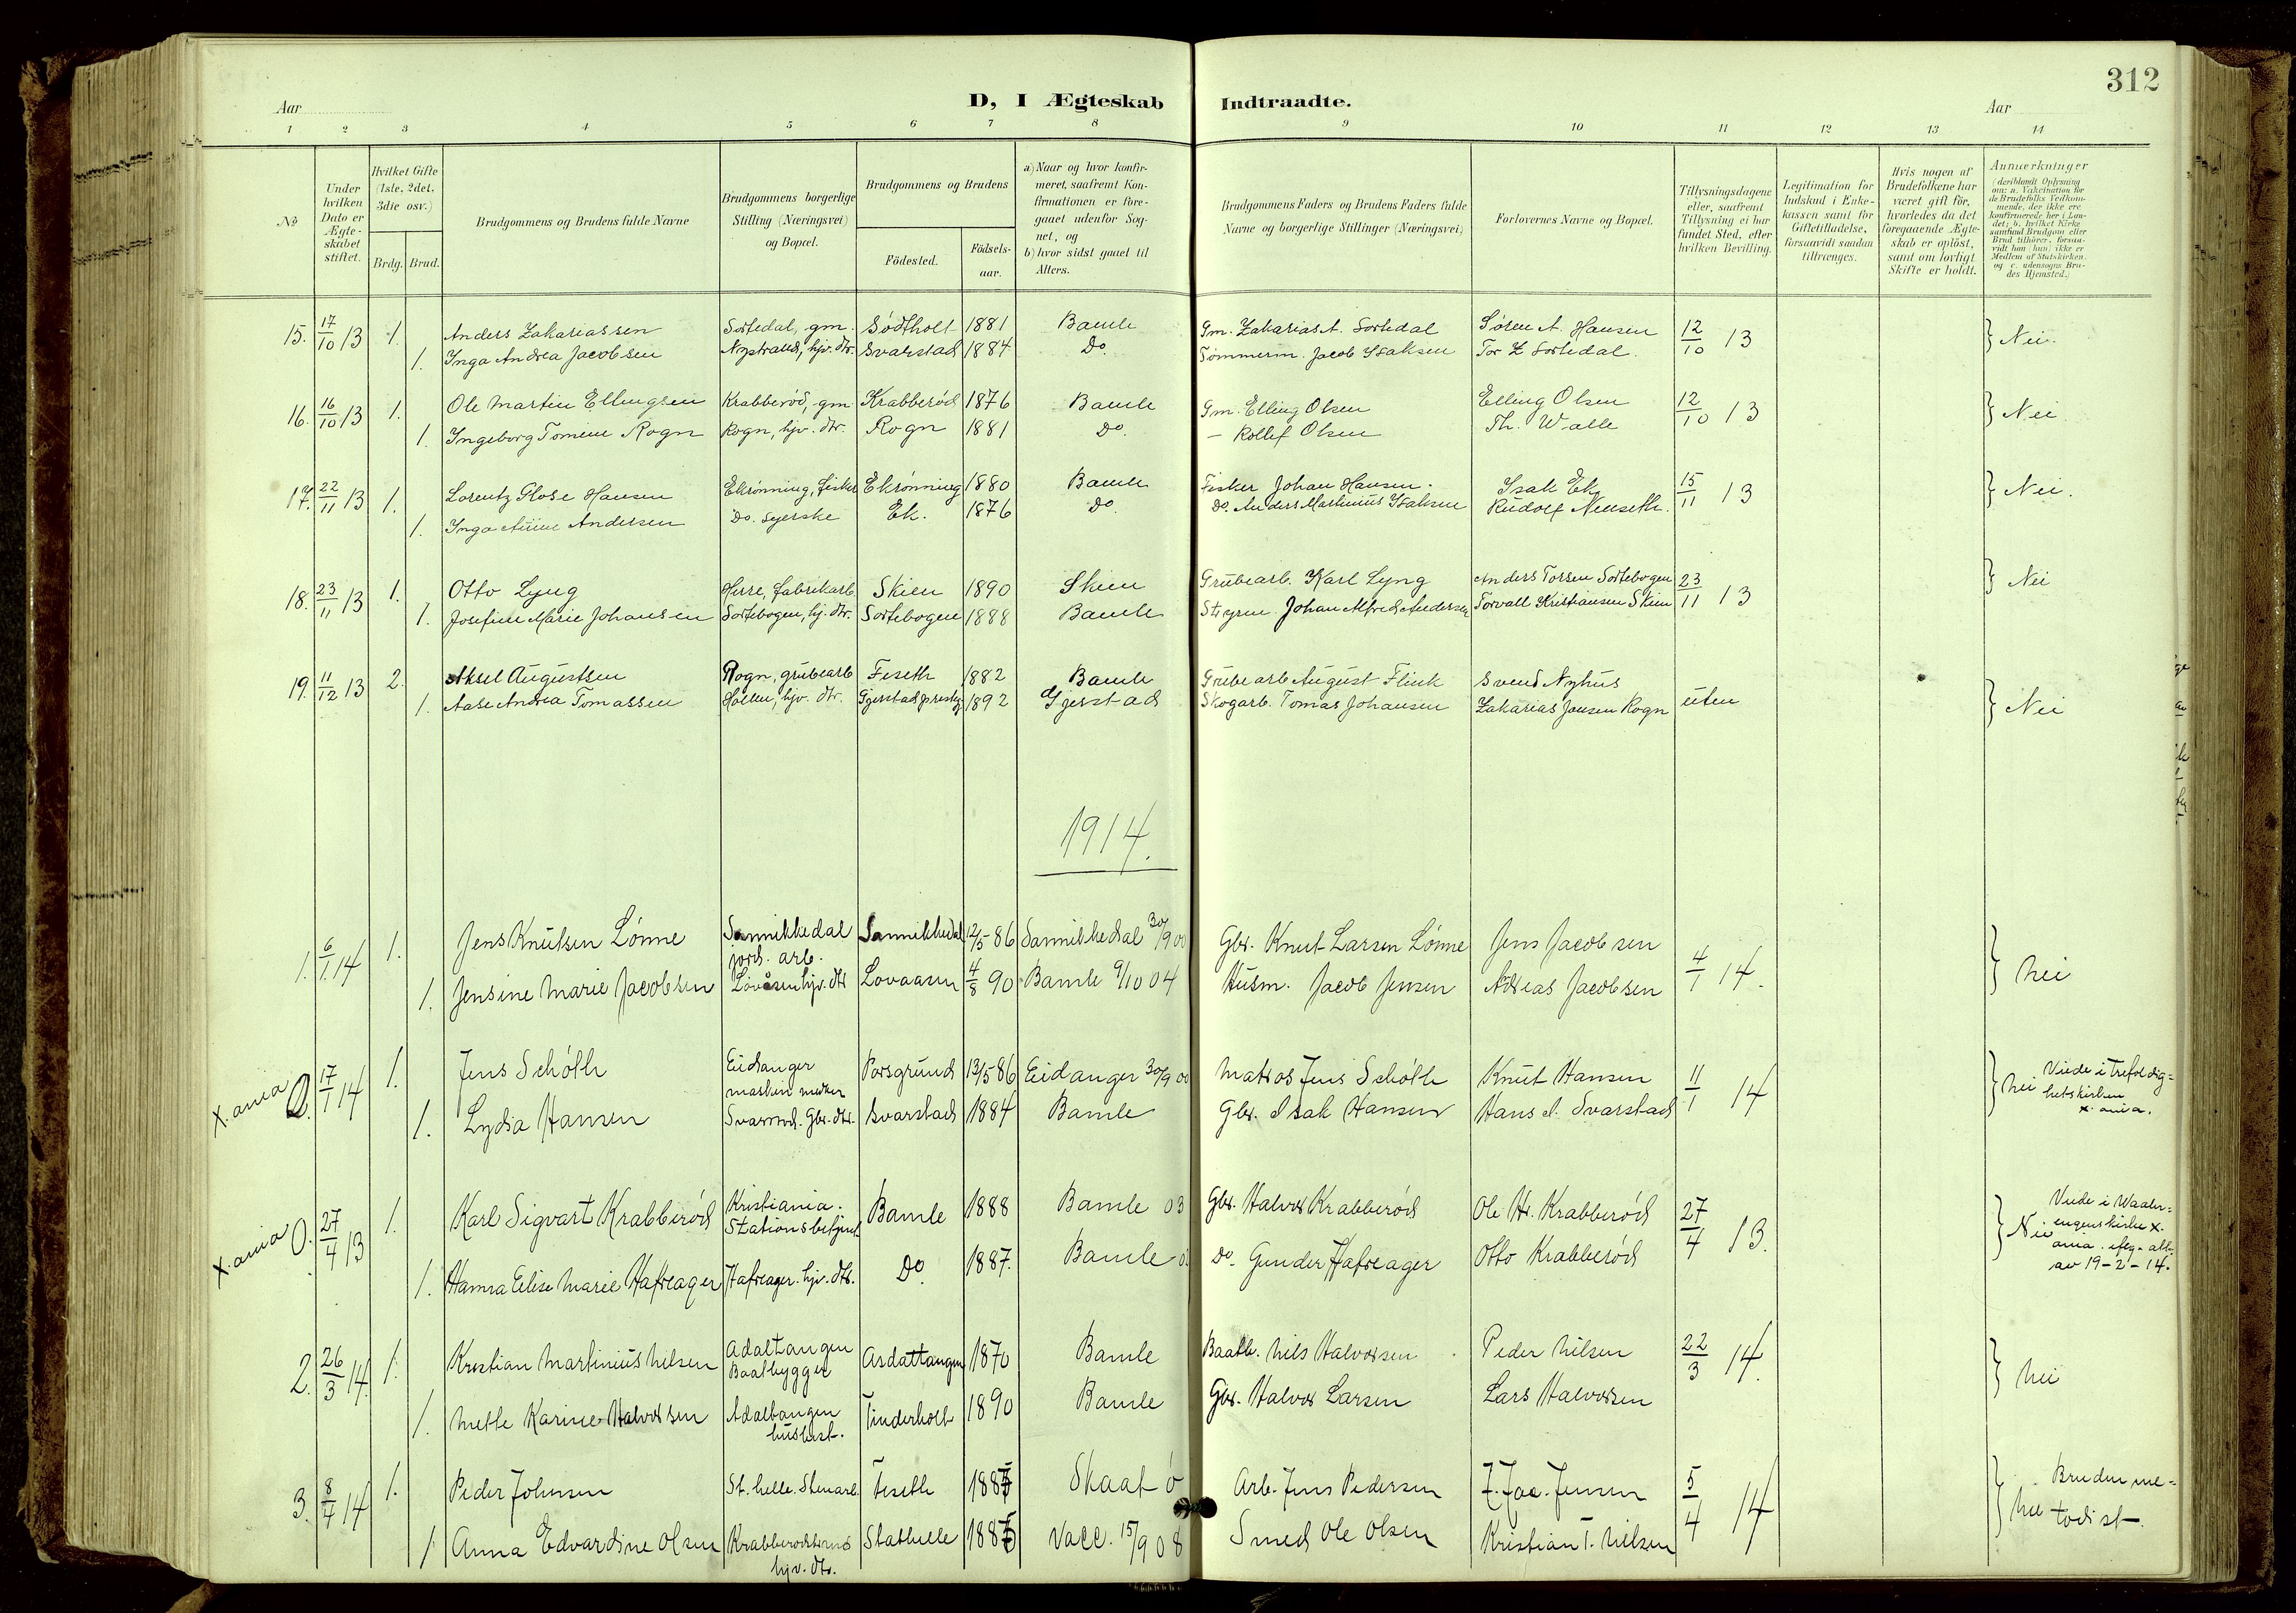 312
Aar
D, I Ægteskab Indtraadte.
Aar
1 2 3 4 5 6 7 8 9 10 11 12 13 14
No
Under hvilken Dato er Ægteskabet stiftet.
Hvilket Gifte (1ste, 2det, 3die osv.)
Brdg. Brud.
Brudgommens og Brudens fulde Navne
Brudgommens borgerlige Stilling (Næringsvei) og Bopæl.
Brudgommens og Brudens
Födested. Födsels-aar.
a) Naar og hvor konfirmeret, saafremt Konfirmationen er foregaaet udenfor Sognet, og
b) hvor sidst gaaet til Alters.
Brudgommens Faders og Brudens Faders fulde Navne og borgerlige Stillinger (Næringsvei)
Forlovernes Navne og Bopæl.
Tillysningsdagene eller, saafremt Tillysning ei har fundet Sted, efter hvilken Bevilling.
Legitimation for Indskud i Enkekassen samt for Giftetilladelse, forsaavidt saadan tiltrænges.
Hvis nogen af Brudefolkene har været gift för, hvorledes da det foregaaende Ægteskab er oplöst, samt om lovligt Skifte er holdt.
Anmærkninger
(deriblandt Oplysning om: a. Vakcination for de Brudefolks Vedkommende, der ikke ere konfirmerede her i Landet; b. hvilket Kirkesamfund Brudgom eller Brud tilhörer, forsaavidt han (hun) ikke er Medlem af Statskirken, og c. udensogns Brudes Hjemsted.)
15. 17/10 13 1. Anders Zakariassen Sortedal, gm. Sødtholt 1881 Bamle Gm. Zakarias A. Sortedal Søren A. Hansen 12/10 13 } Nei.
1. Inga Andrea Jacobsen Nystrand, hjv. dtr. Svarstad 1884 Do. Tømmerm. Jacob Isaksen Tor Z Sortedal.
16. 16/10 13 1. Ole Martin Ellingsen Krabberød, gm Krabberød 1876 Bamle Gm. Elling Olsen Elling Olsen 12/10 13 } Nei
1. Ingeborg Tomine Rogn Rogn, hjv. dtr. Rogn 1881 Do. — Rollef Olsen Th. Walle
17. 22/11 13 1. Lorentz Hansen Ekrønning, fisker Ekrønning 1880 Bamle Fisker Johan Hansen. Isak Ek 15/11 13 } Nei.
1. Inga Andersen Do. Syerske Ek. 1876 Do. Do. Anders Martinius Isaksen Rudolf Neuseth.
18. 23/11 13 1. Otto Lyng Herre, fabrikarb. Skien 1890 Skien Grubearb. Karl Lyng Anders Torsen Sortebogen 23/11 13 } Nei
1. Josefine Marie Johansen Sortebogen, hj. dtr. Sortebogen 1888 Bamle Styrm. Johan Alfred Andersen Torvall Kristiansen Skien
19. 11/12 13 2. Aksel Augustsen Rogn, grubearb Feseth 1882 Bamle Grubearb August Flink Svend Nyhus uten } Nei
1. Aase Andrea Tomassen hjv. dtr. Gjerstad 1892 Gjerstad Skogarb. Tomas Johansen Zakarias Jansen Rogn
1914.
1. 6/1 14 1. Jens Knutsen Lønne Sannikkedal jord. arb. Sannikkedal 12/5 - 86 Sannikkedal 30/9 00 Gbr. Knut Larsen Lønne Jens Jacobsen 4/1 14. } Nei
1. Jensine Marie Jacobsen Lovåsen hjv. dtr Lovaasen 4/8 90 Bamle 9/10 04 Husm. Jacob Jensen Adreas Jacobsen
X.ania 0. 17/1 14 1. Jens Schölth Eidanger Porsgrund 13/5 86 Eidanger 30/9 00 Matros Jens Schölth Knut Hansen 11/1 14 } Nei Viede i Trefoldighetskirken x.ania.
1. Lydia Hansen Gbr. dtr. Svarstad 1884 Bamle Gbr. Isak Hansen Hans I. Svarstad
X.ania 0. 27/4 13 1. Karl Sigvart Krabberød Kristiania. Stationsbetjent Bamle 1888 Bamle 03 Gbr. Halvor Krabberød Ole H. Krabberød 27/4 13. } Nei Viede i Waalerengens kirke x.ania. ifg. att. av 19-2-14.
1. Hanna Elise Marie Hafreager Hafreager. hjv. dtr. Do. 1887. Bamle Do. Gunder Hafreager Otto Krabberød
2. 26/3 14. 1. Kristian Martinius Nilsen Adaltangen Baatbygger Ardaltangen 1870 Bamle Baatb. Nils Halvorsen Peder Nilsen 22/3 14. } Nei
1. Mette Karine Halvorsen Adaltangen husbest. Tinderholt 1890 Bamle Gbr. Halvor Larsen Lars Halvorsen
3. 8/4 14 1. Peder Johnsen St.helle. Stenarb. Feseth Skaatö Arb. Jens Pedersen Z. Jac. Jensen 5/4 14 } Nei Bruden metodist.
1 Anna Edvardine Olsen hjv. dtr. Stathelle Vacc. 15/9 08 Smed Ole Olsen Kristian T. Nilsen